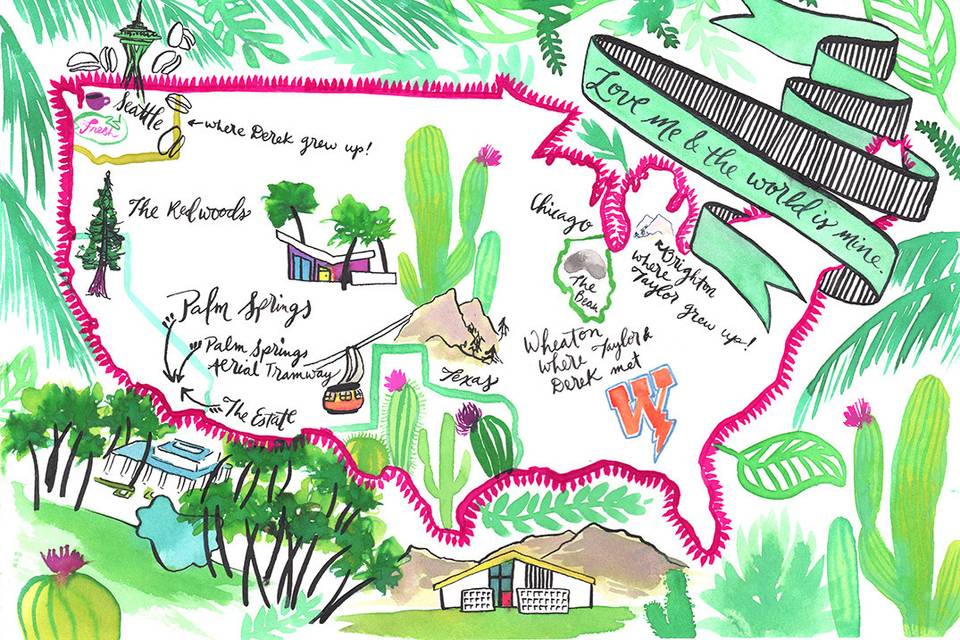 Love me & the world is mine.
Seattle
Fresh
←where Derek grew up!
The Redwoods
Chicago
The
Bean
Brighton
where
Taylor grew up!
Palm Springs
Palm Springs
Aerial Tramway
The Estate
Texas
Wheaton
where Taylor &
Derek met
W